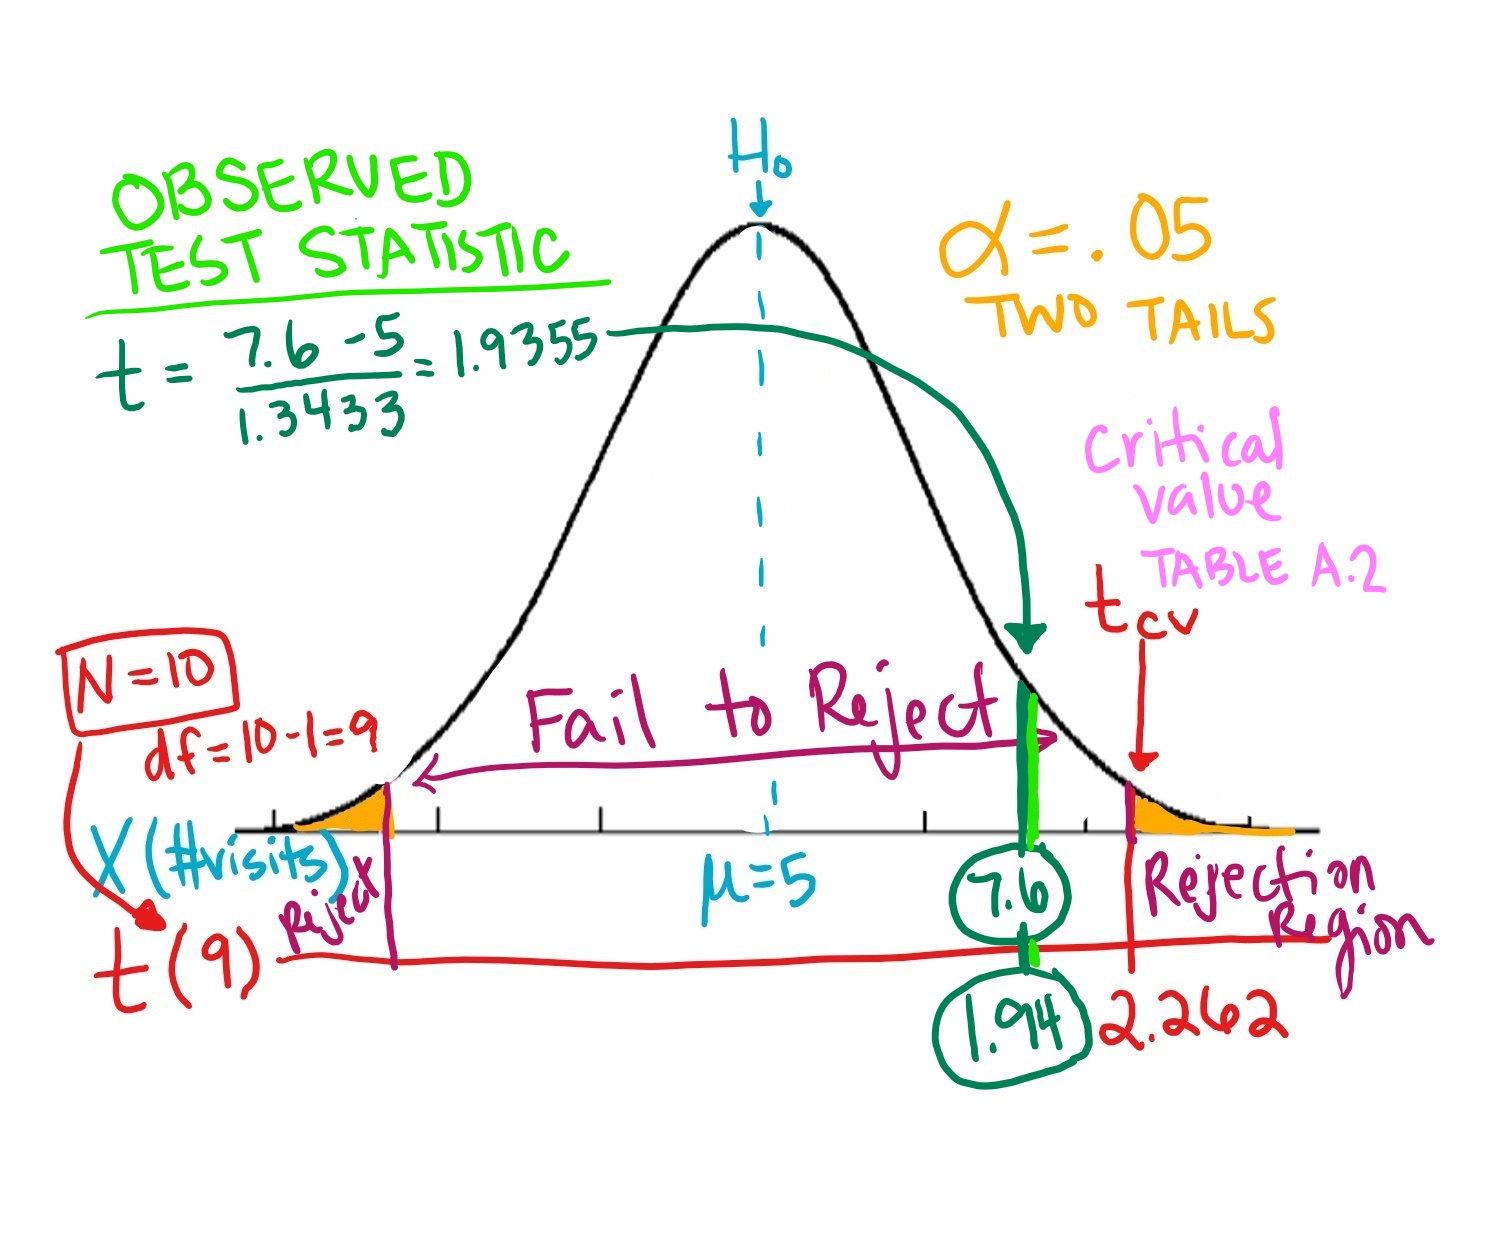 H₀
OBSERVED
TEST STATISTIC
t = 7.6 - 5 / 1.3433 = 1.9355
α = .05
TWO TAILS
Critical
value
TABLE A.2
t cv
N = 10
df = 10 - 1 = 9
Fail to Reject
X (#visits)
Reject
μ = 5
7.6
Rejection
Region
t (9)
1.94
2.262